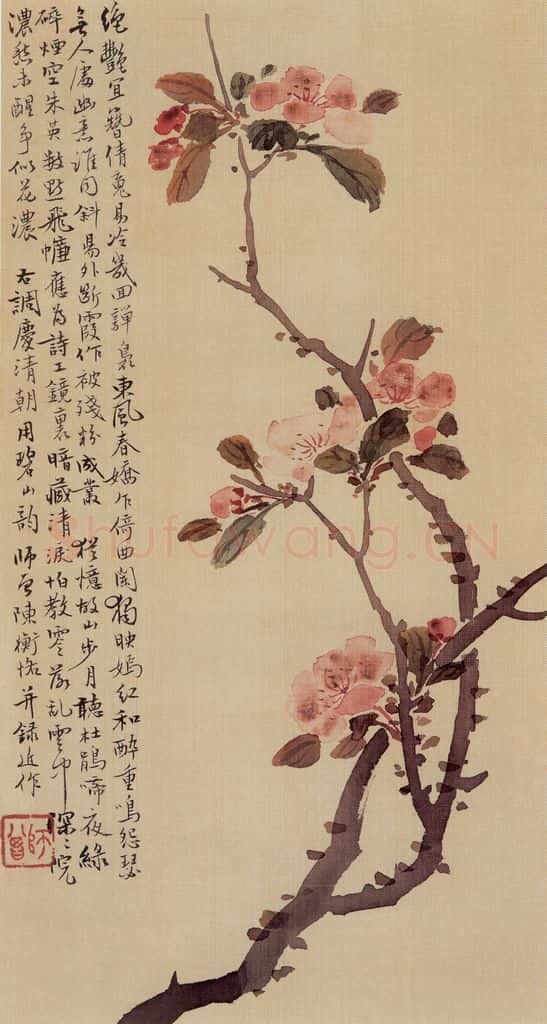 絶艷宜簪倩魂易冷幾回裊東風春嬌乍倚曲闌獨映嫣紅和醉重鳴怨瑟
無人處幽意誰同斜陽外斷霞作被殘粉成叢 猶憶故山步月聽杜鵑啼夜綠
碎煙空朱英數點飛慵應為詩工鏡裏暗藏清淚怕教零落亂雲中 深〻院
濃愁未醒爭似花濃 右調慶清朝用碧山韵 師曾陳衡恪并録近作
師曾
Shufawang.CN